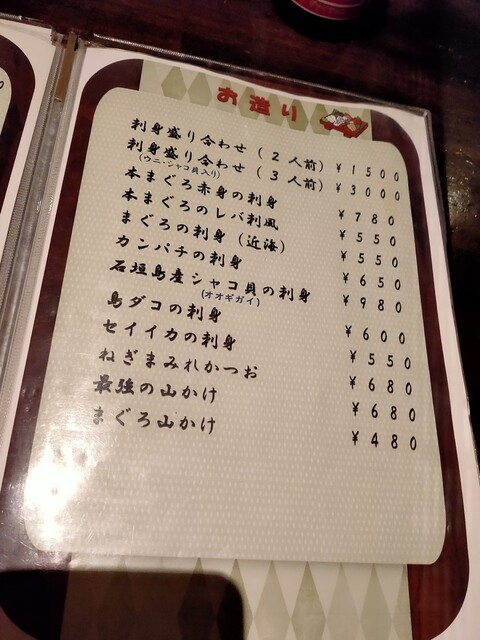 お造り
刺身盛り合わせ（2人前） ¥1500
刺身盛り合わせ（3人前） ¥3000
（ウニ・シャコ貝入り）
本まぐろ赤身の刺身 ¥780
本まぐろのレバ刺風 ¥550
まぐろの刺身（近海） ¥550
カンパチの刺身 ¥650
石垣島産シャコ貝の刺身 ¥980
（オオギガイ）
島ダコの刺身 ¥600
セイイカの刺身 ¥550
ねぎまみれかつお ¥680
最強の山かけ ¥680
まぐろ山かけ ¥480